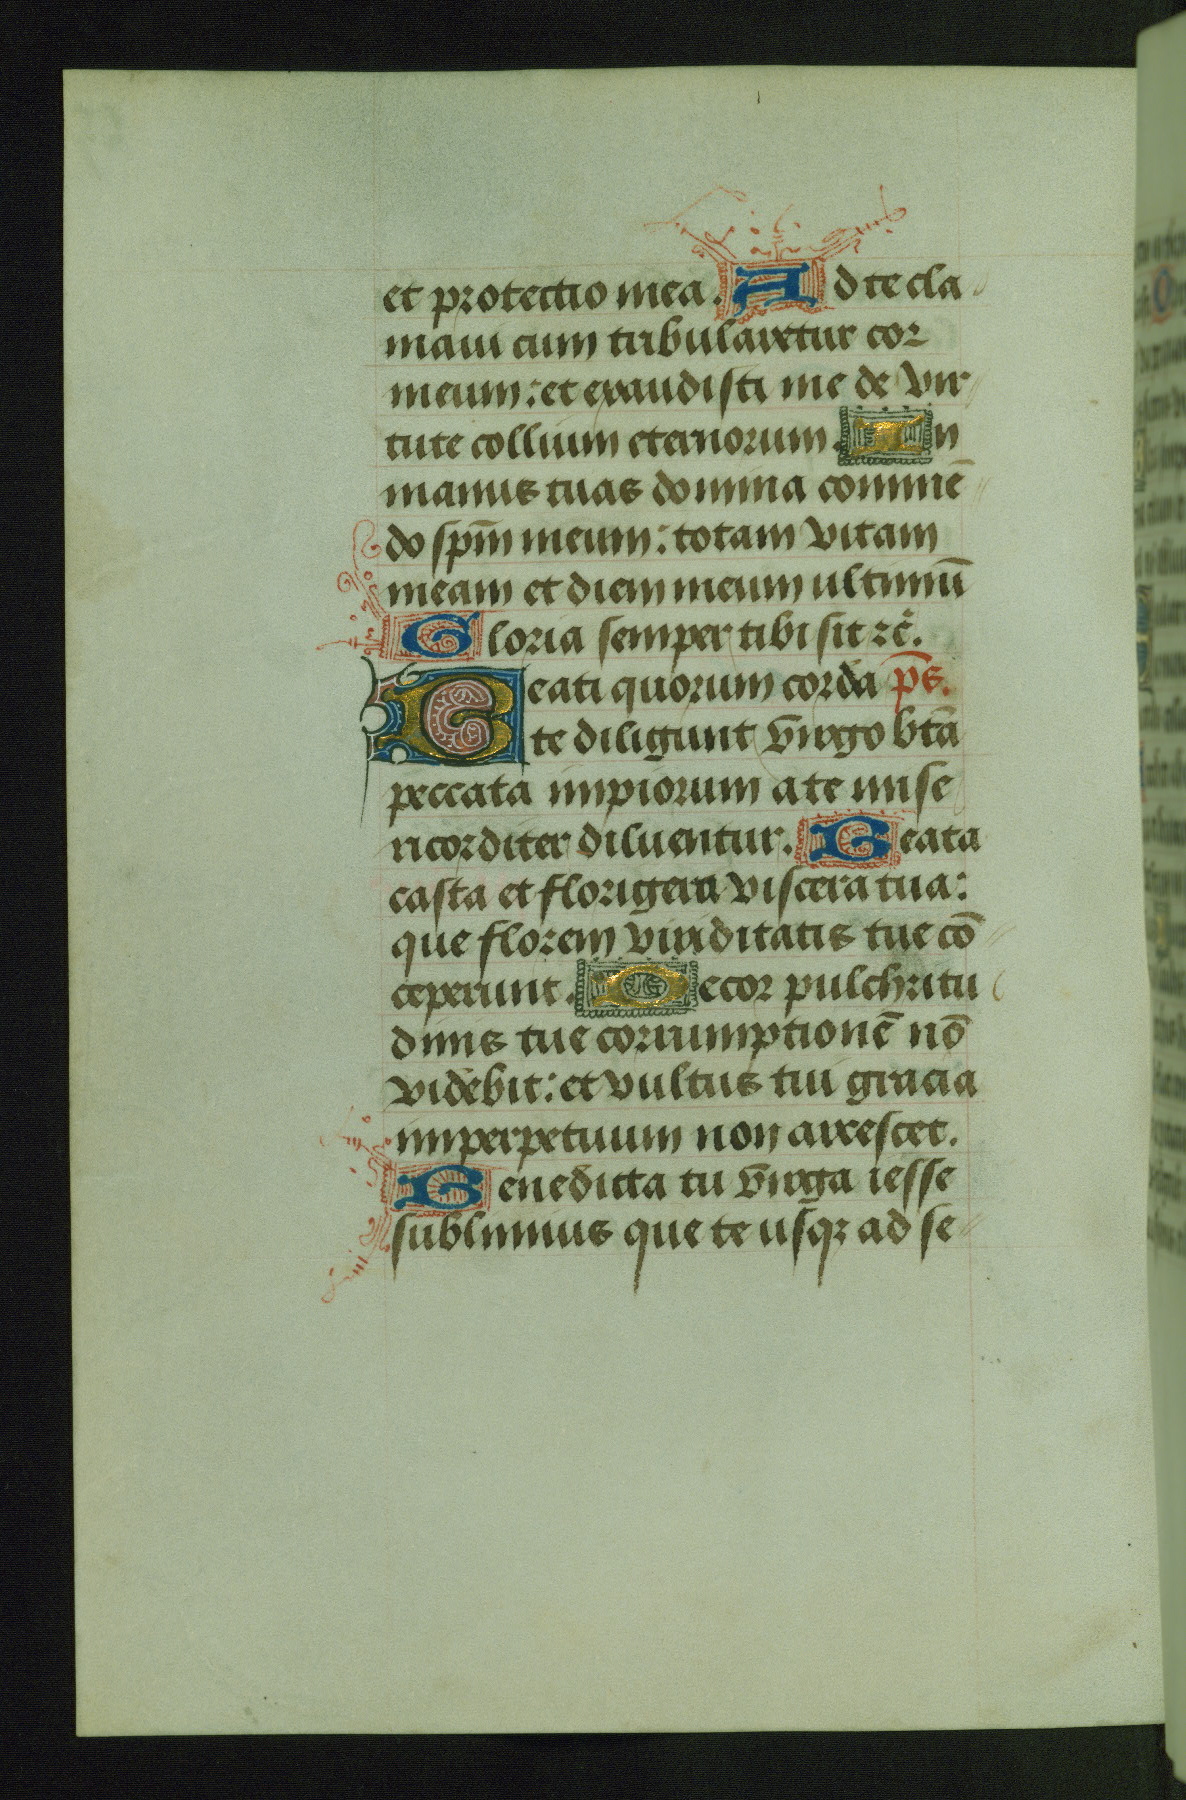 et protectio mea. Ad te cla
maui cum tribularetur cor
meum: et exaudisti me de vir
tute collium eternorum. In
manus tuas domina comme̅
do sp̅m meum: totam vitam
meam et diem meum ultimu̅
Gloria semper tibi sit ⁊c̅.
Beati quorum corda p̅s.
te diligunt v̅irgo bt̅a
peccata impiorum a te mise
ricorditer diluentur. Beata
casta et florigera viscera tua:
que florem viriditatis tue co̅
ceperunt. Decor pulchritu
dinis tue corrumptione̅ no̅
videbit: et vultus tui gracia
imperpetuum non arescet.
Benedicta tu v̅irga iesse
sublimius que te usqꝫ ad se